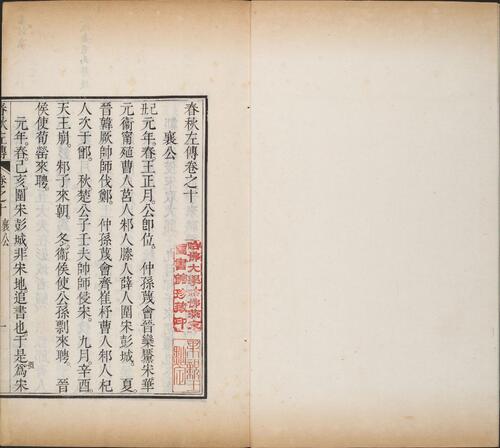 春秋左傳卷之十
襄公
元年。春王正月。公卽位。仲孫蔑會晉欒黶宋華
元衞甯殖曹人莒人邾人滕人薛人圍宋彭城。夏。
晉韓厥帥師伐鄭。仲孫蔑會齊崔杼曹人邾人杞
人次于鄫。秋楚公子壬夫帥師侵宋。九月。辛酉。
天王崩。邾子來朝。冬。衞侯使公孫剽來聘。晉
侯使荀罃來聘。
元年。春己亥圍宋彭城非宋地追書也于是爲宋
春秋左傳 卷之十 襄公 一
哈佛大學哈佛燕京
圖書館珍藏印